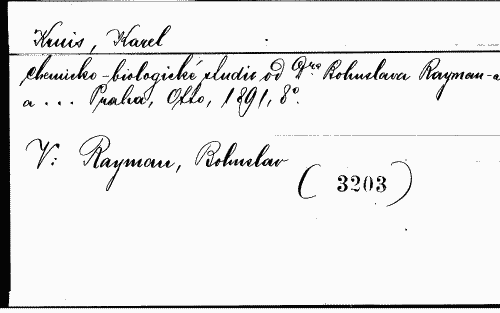 Kruis, Karel
chemicko-biologické studie od Dra Bohuslava Rayman-a
a ... Praha, Otto, 1891, 8°.
V: Rayman, Bohuslav
(3203)